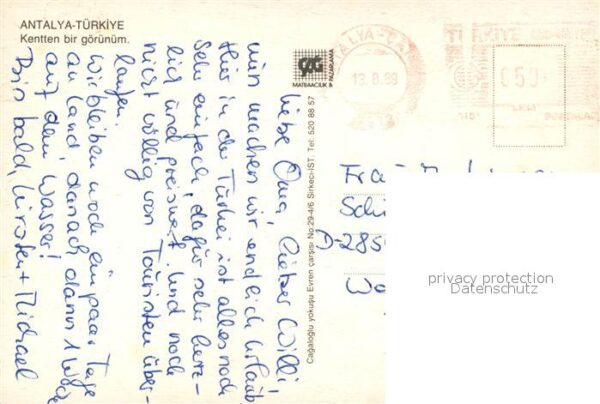 ANTALYA-TÜRKİYE
Kentten bir görünüm.
Liebe Oma, lieber Willi,
nun machen wir endlich Urlaub.
Hier in der Türkei ist alles noch
sehr einfach, dafür sehr herz-
lich und preiswert. Und noch
nicht völlig von Touristen über-
laufen.
Wir bleiben noch ein paar Tage
an Land, danach dann 1 Woche
auf dem Wasser!
Bis bald, Kirsten + Michael
ÇAĞ
MATBAACILIK & PAZARLAMA
Cağaloğlu yokuşu Evren çarşısı No:29-4/6 Sirkeci-İST. Tel: 520 88 57
13.8.89
TÜRKİYE
050
Frau
Schi
D-285
privacy protection
Datenschutz